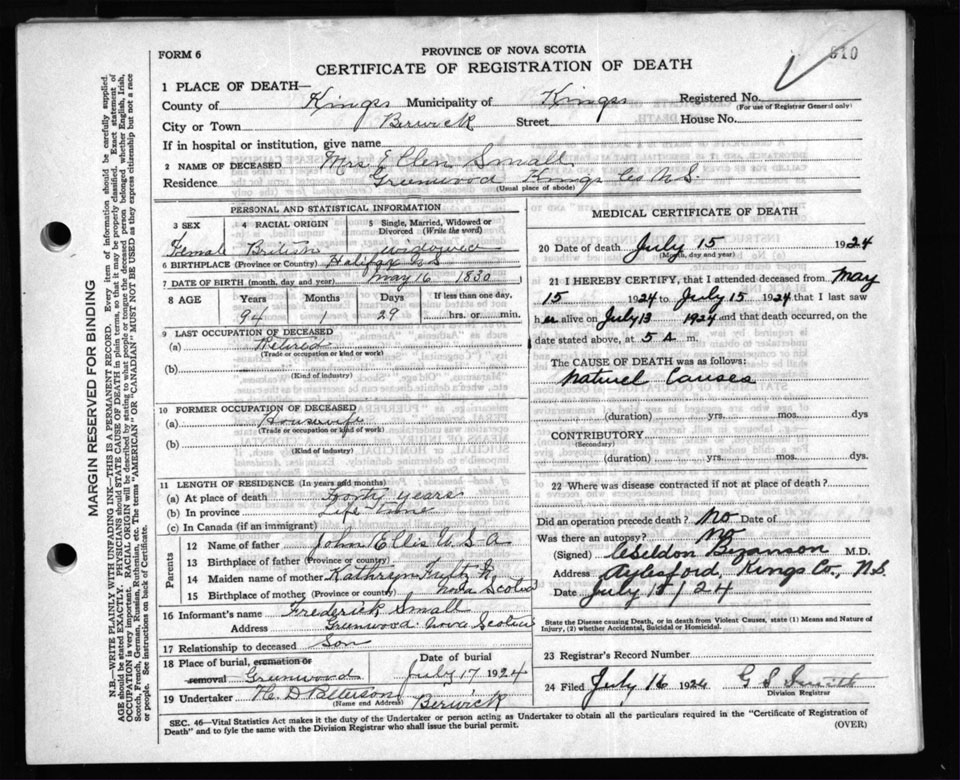 FORM 6
PROVINCE OF NOVA SCOTIA
CERTIFICATE OF REGISTRATION OF DEATH
810
1 PLACE OF DEATH—
County of Kings Municipality of Kings Registered No.
(For use of Registrar General only)
City or Town Berwick Street House No.
If in hospital or institution, give name
2 NAME OF DECEASED Mrs Ellen Small
Residence Greenwood Kings Co N.S.
(Usual place of abode)
PERSONAL AND STATISTICAL INFORMATION
3 SEX 4 RACIAL ORIGIN 5 Single, Married, Widowed or Divorced (Write the word)
Female British widowed
6 BIRTHPLACE (Province or Country) Halifax NS
7 DATE OF BIRTH (month, day, and year) May 16 1830
8 AGE Years Months Days If less than one day,
94 1 29 hrs. or min.
9 LAST OCCUPATION OF DECEASED
(a) Retired
(Trade or occupation or kind of work)
(b)
(Kind of industry)
10 FORMER OCCUPATION OF DECEASED
(a) Housewife
(Trade or occupation or kind of work)
(b)
(Kind of industry)
11 LENGTH OF RESIDENCE (In years and months)
(a) At place of death Forty years
(b) In province Life time
(c) In Canada (if an immigrant)
Parents
12 Name of father John Ellis U S A
13 Birthplace of father (Province or country)
14 Maiden name of mother Kathryn Fultz
15 Birthplace of mother (Province or country) Nova Scotia
16 Informant's name Frederick Small
Address Greenwood Nova Scotia
17 Relationship to deceased Son
18 Place of burial, cremation or removal Greenwood Date of burial July 17 1924
19 Undertaker H. D Patterson Berwick
(Name and Address)
MEDICAL CERTIFICATE OF DEATH
20 Date of death July 15 1924
(Month, day and year)
21 I HEREBY CERTIFY, that I attended deceased from May
15 1924 to July 15 1924 that I last saw
her alive on July 13 1924 and that death occurred, on
date stated above, at 5 A m.
The CAUSE OF DEATH was as follows:
Naturel Causes
(duration) yrs. mos. dys
CONTRIBUTORY
(Secondary)
(duration) yrs. mos. dys
22 Where was disease contracted if not at place of death?
Did an operation precede death? No Date of
Was there an autopsy? No
(Signed) Bezanson M.D.
Address Aylesford, Kings Co., N.S.
Date July 15/24
State the Disease causing Death, or in death from Violent Causes, state (1) Means and Nature of
Injury, (2) whether Accidental, Suicidal or Homicidal.
23 Registrar's Record Number
24 Filed July 16 1924 G S Smith
Division Registrar
SEC. 46—Vital Statistics Act makes it the duty of the Undertaker or person acting as Undertaker to obtain all the particulars required in the "Certificate of Registration of
Death" and to fyle the same with the Division Registrar who shall issue the burial permit.
(OVER)
MARGIN RESERVED FOR BINDING
N.B.—WRITE PLAINLY WITH UNFADING INK—THIS IS A PERMANENT RECORD. Every item of information should be carefully supplied.
AGE should be stated EXACTLY. PHYSICIANS should STATE CAUSE OF DEATH in plain terms, so that it may be properly classified. Exact statement of
OCCUPATION is very important. RACIAL ORIGIN will be described by stating to what people or tongue the deceased person belonged whether English, Irish,
Scotch, French, German, Russian, Ruthenian, etc. The terms "AMERICAN" OR "CANADIAN" MUST NOT BE USED as they express citizenship but not a race
or people. See instructions on back of Certificate.